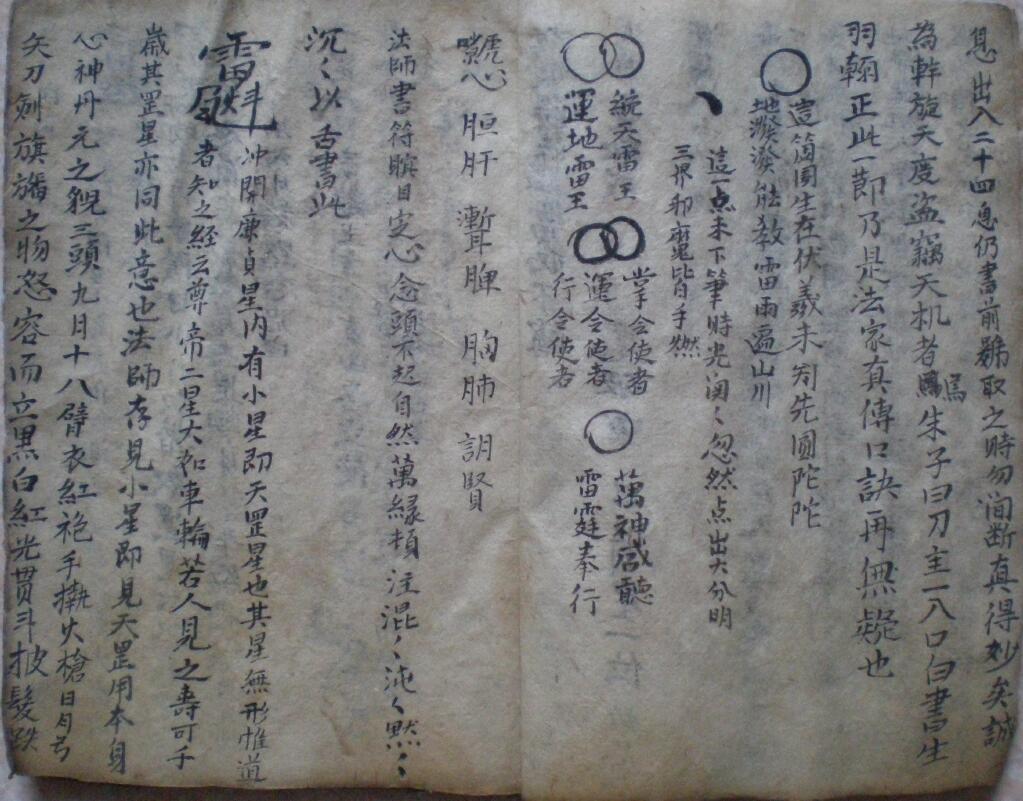 息出入二十四息仍書前號取之時勿間断真得妙矣誠
為斡旋天度盗竊天机者焉朱子曰刀圭一入口白書生
羽翰正此一節乃是法家真傳口訣再無疑也
這箇圏生在伏羲未旬先圓陀陀
地潑潑能教雷雨遍山川
這一点未下筆時光渕〻忽然点出大分明
三界邪魔皆手燃
統天雷王
運地雷王
掌令使者
運令使者
行令使者
萬神咸聽
雷霆奉行
心 胆肝 脾 胸肺 腎
法師書符瞑目定心念頭不起自然萬緣頓注混〻沌〻黙〻
沉〻以舌書此
雷
冲開廉貞星内有小星即天罡星也其星無形惟道
者知之経云尊帝二星大如車輪若人見之壽可千
歳其罡星亦同此意也法師存見小星即見天罡用本身
心神丹元之貌三頭九日十八臂衣紅袍手執火槍日月弓
矢刀劍旗旛之物怒容而立黒白紅光貫斗披髮跌